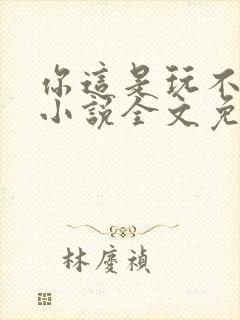 你這是玩不
小說全文免
林慶禎